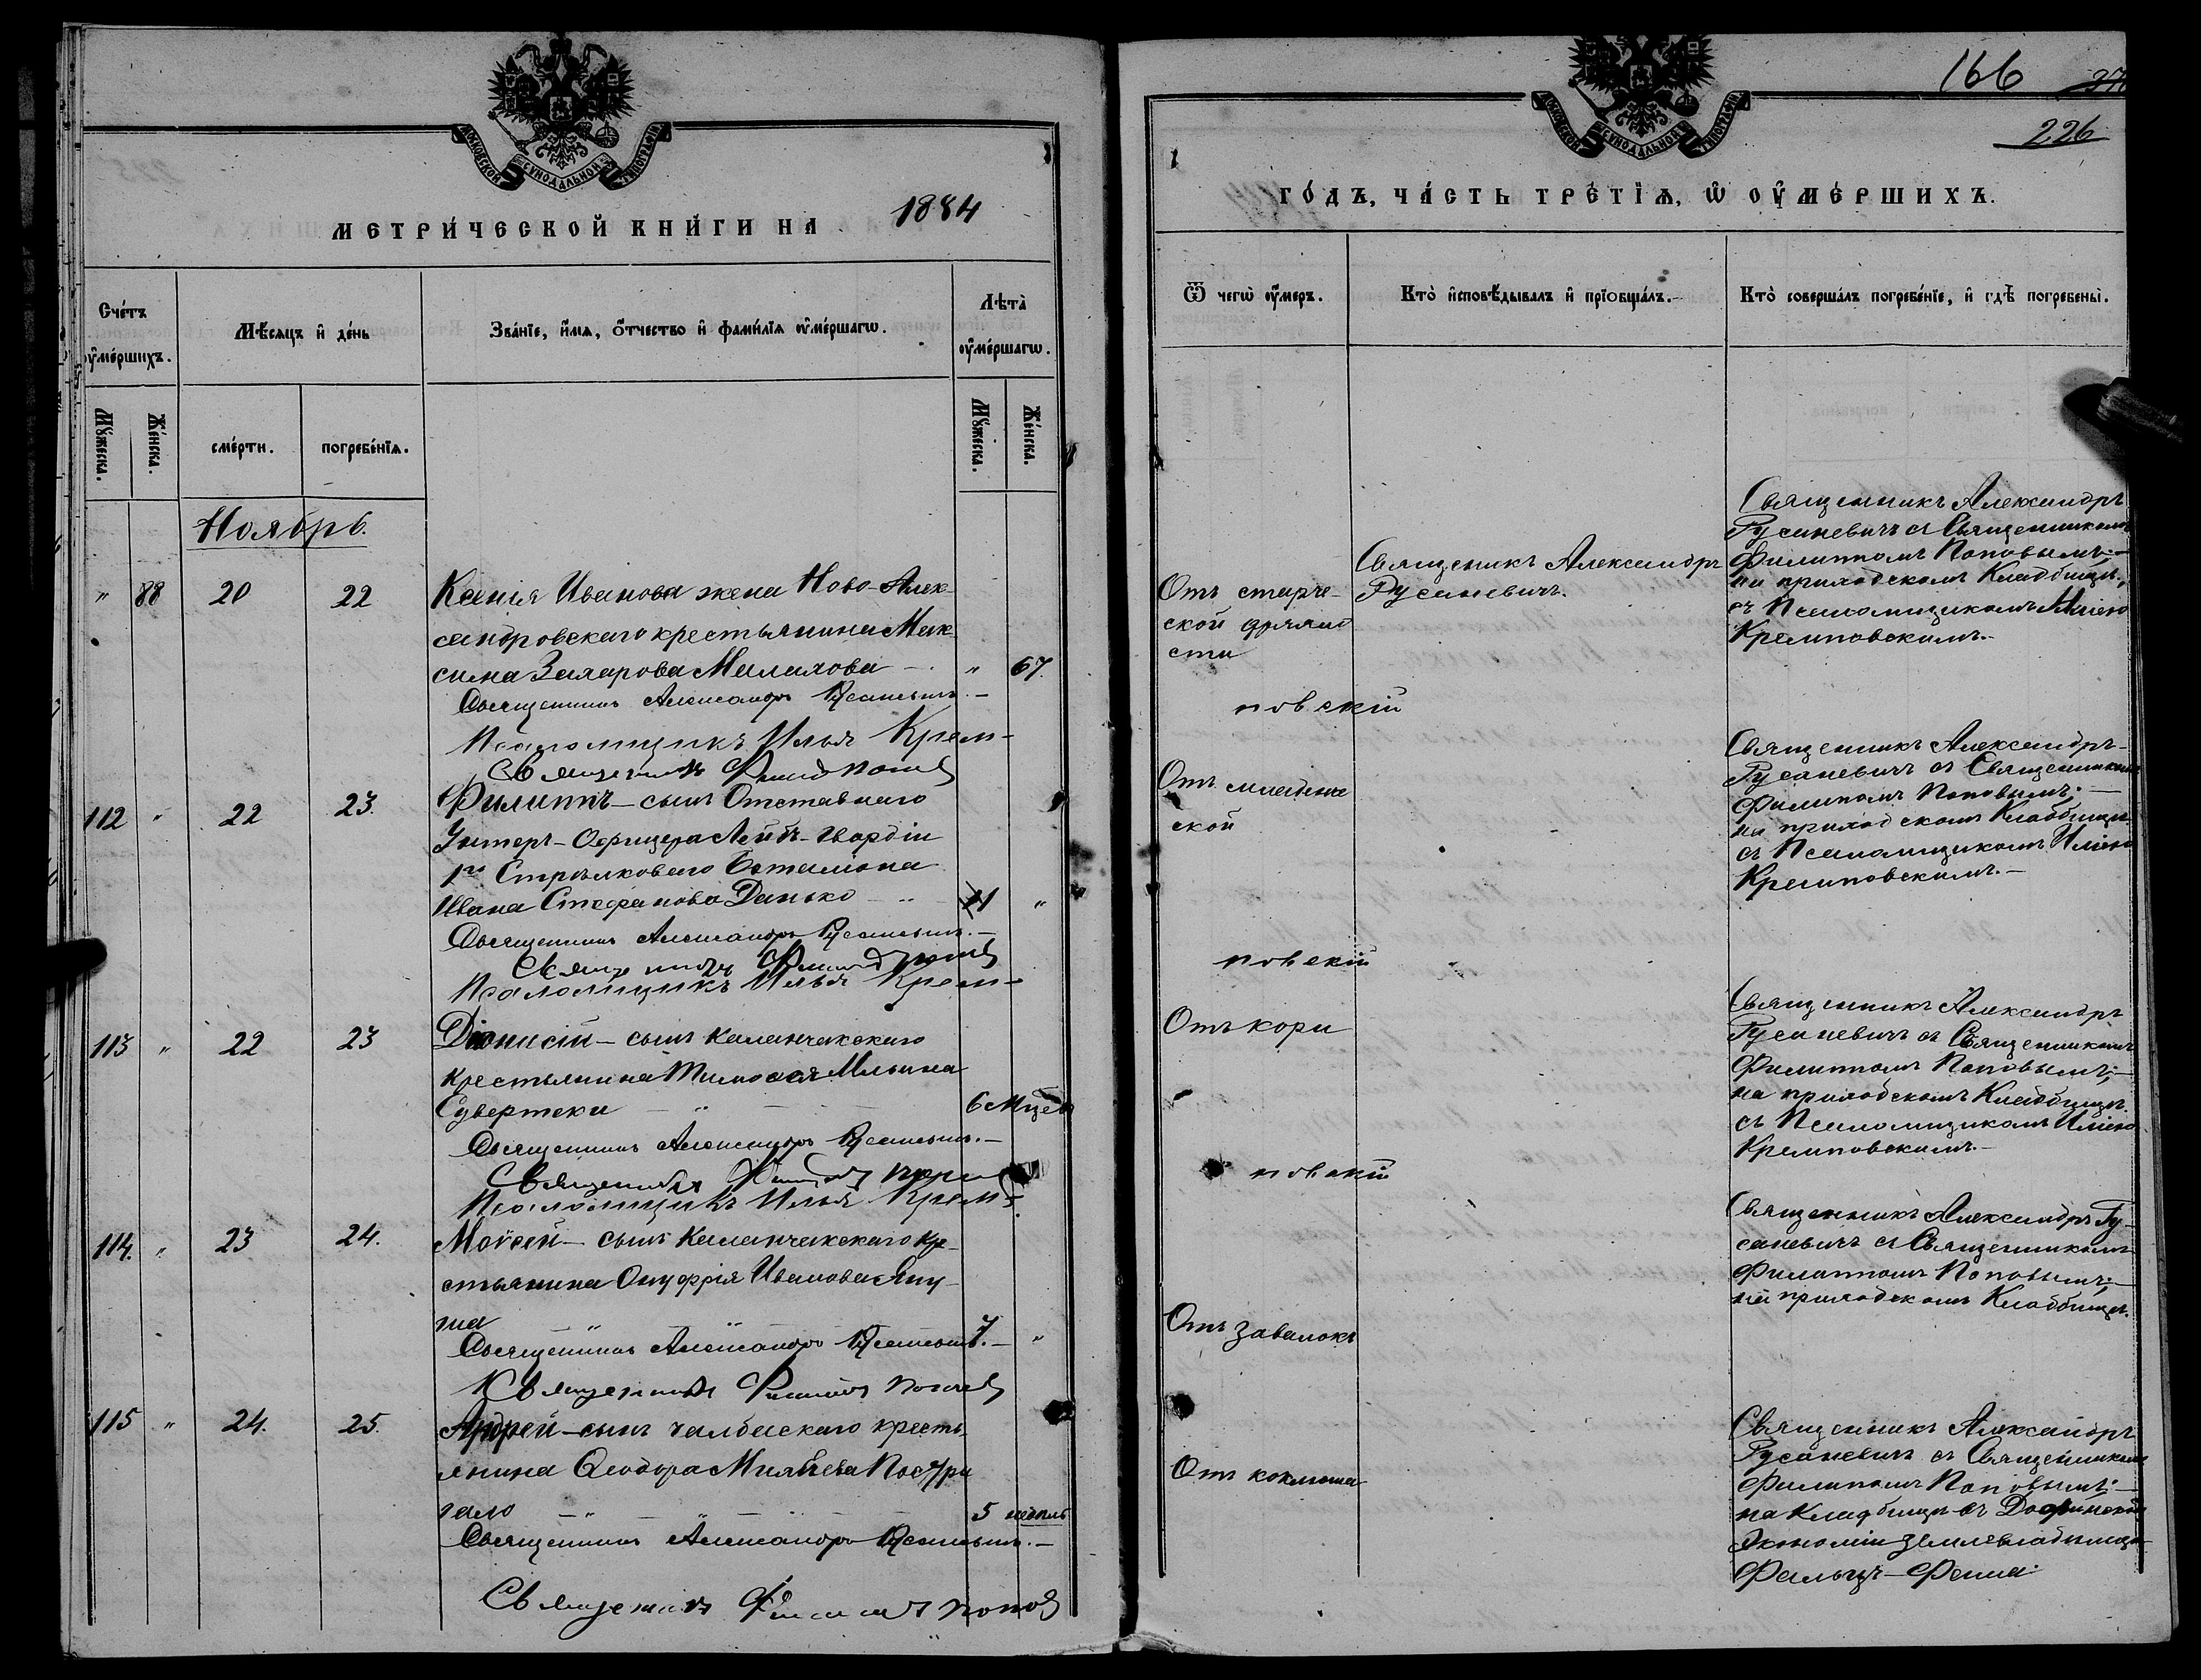 МОСКОВСКОЙ СУНОДАЛЬНОЙ ТИПОГРАФІИ
МЕТРИ́ЧЕСКОЙ КНИ́ГИ НА 1884
Сче́тъ ᲂу҆ме́ршихъ.
Мѣ́сяцъ и҆ де́нь
Зва́нїе, и҆́мѧ, ѻ҆́тчество и҆ фами́лїѧ ᲂу҆ме́ршагѡ.
Лѣ́та ᲂу҆ме́ршагѡ.
Мꙋ́жеска.
Же́нска.
сме́рти.
погребе́нїѧ.
Мꙋ́жеска.
Же́нска.
Ноябрь.
" 88 20 22 Ксенія Иванова жена Ново-Алек-
сандровскаго крестьянина Мак-
сима Захарова Малахова - " 67.
Священникъ Александръ Русаневичъ. -
Псаломщикъ Илья Крем-
Священникъ Филиппъ Попов
112 " 22 23. Филиппъ - сынъ Отставнаго
Унтеръ-Офицера Лейбъ-Гвардіи
1го Стрѣлковаго Баталіона
Ивана Стефанова Данько - 1 "
Священникъ Александръ Русаневичъ. -
Священникъ Филиппъ Попов
Псаломщикъ Илья Крем-
113 " 22 23 Діонисій - сынъ Каланчакскаго
крестьянина Тимофея Ильина
Сувертеки - " - 6 Мцевъ
Священникъ Александръ Русаневичъ. -
Священникъ
Псаломщикъ Илья Крем-
114. " 23 24. Моѵсей - сынъ Каланчакскаго кре-
стьянина Онуфрія Иванова Япу-
ша 7. "
Священникъ Александръ Русаневичъ. -
Священникъ Филиппъ Попов
115 " 24. 25. Андрей - сынъ чалбаскаго кресть-
янина Ѳеодора Матвѣева
5 недѣль
Священникъ Александръ Русаневичъ. -
Священникъ Филиппъ Попов
166
226
МОСКОВСКОЙ СУНОДАЛЬНОЙ ТИПОГРАФІИ
ГО́ДЪ, ЧА́СТЬ ТРЕ́ТЇѦ, Ѡ҆ ОУ҆МЕ́РШИХЪ.
Ѿ чегѡ̀ ᲂу҆́меръ.
Кто̀ и҆сповѣ́дывалъ и҆ прїѻбща́лъ.
Кто̀ соверша́лъ погребе́нїе, и҆ гдѣ̀ погребены̀.
Отъ старче-
ской дряхло
сти
Священикъ Александръ
Русаневичъ.
Священникъ Александръ
Русаневичъ съ Священникомъ
Филиппомъ Поповымъ; -
на приходскомъ Кладбищѣ,
съ Псаломщикомъ Иліею
Кремповскимъ. -
повскій
Отъ младенче
ской
Священникъ Александръ
Русаневичъ съ Священникомъ
Филипомъ Поповымъ; -
на приходскомъ Кладбищѣ
съ Псаломщикомъ Иліею
Кремповскимъ. -
повскій
Отъ кори
Священникъ Александръ
Русаневичъ съ Священникомъ
Филиппомъ Поповымъ; -
на приходскомъ Кладбищѣ.
съ Псаломщикомъ Иліею
Кремповскимъ. -
повскій
Отъ завалокъ
Священникъ Александръ Ру-
саневичъ съ Священникомъ
Филиппомъ Поповымъ; -
на приходскомъ Кладбищѣ.
Отъ коклюша
Священникъ Александръ
Русаневичъ съ Священникомъ
Филипомъ Поповымъ: -
на Кладбищѣ въ Дофинской
Экономіи землевладѣльца
Фальцъ-Фейна.